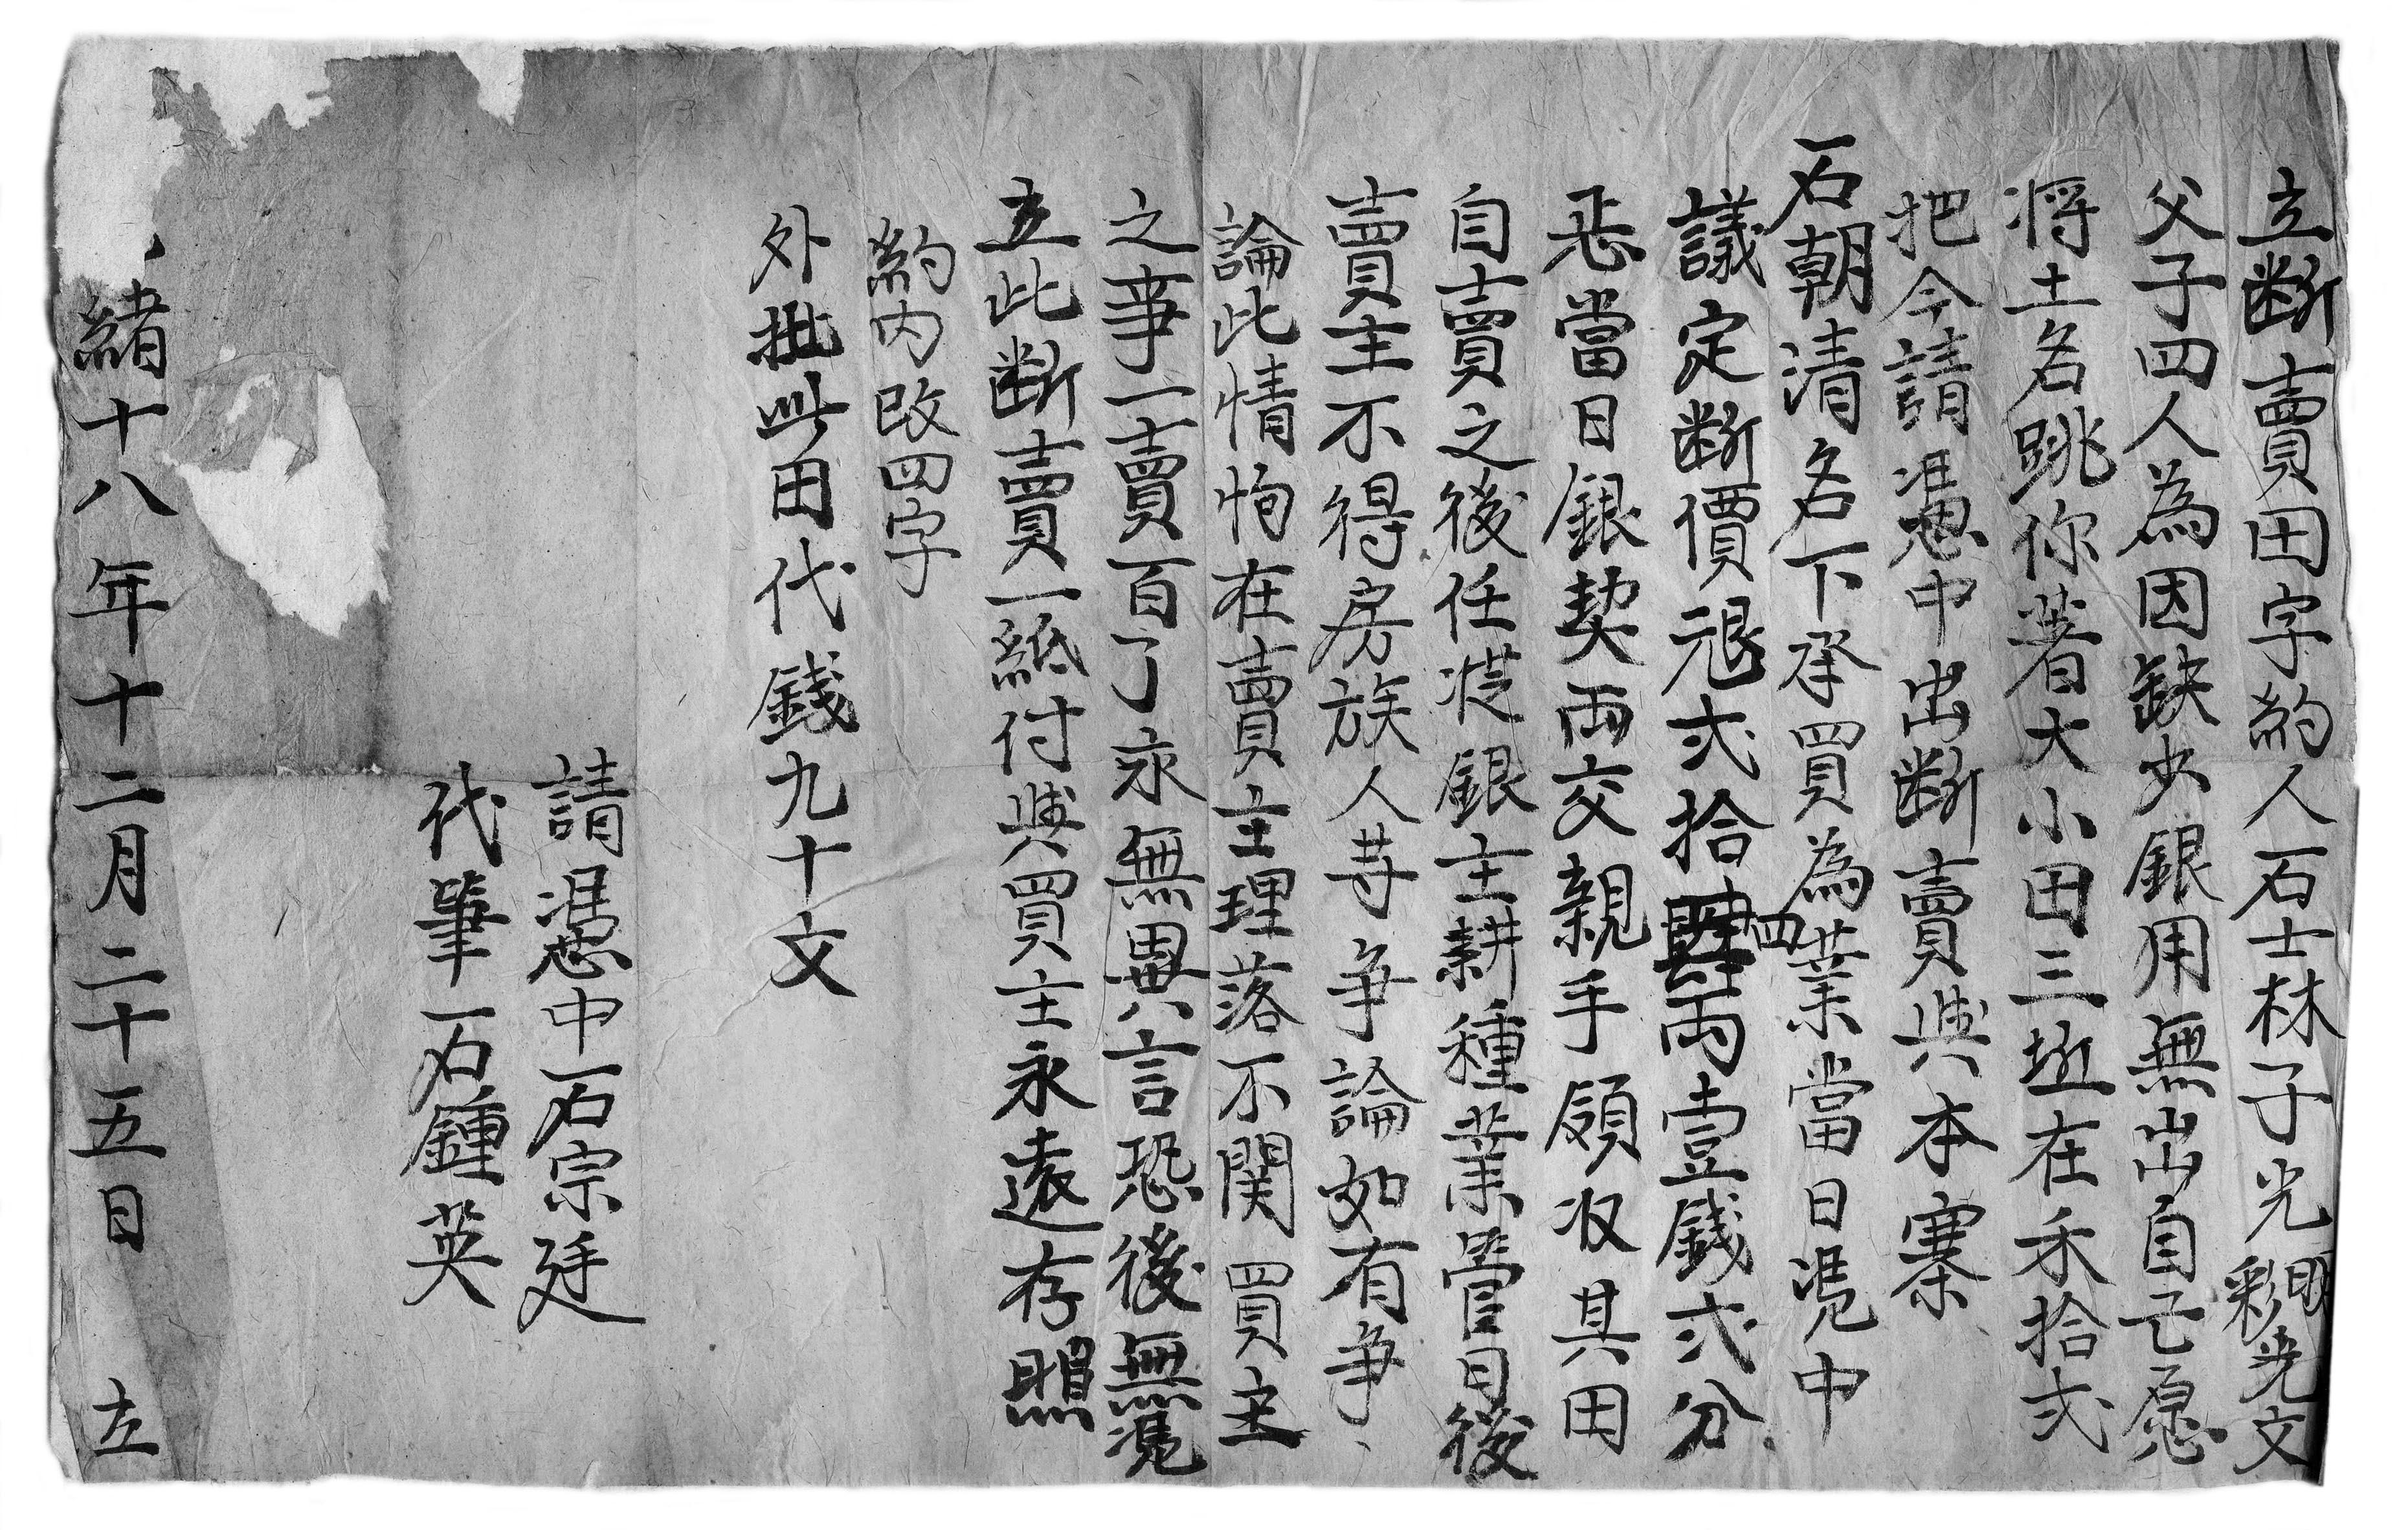 立断賣田字約人石士林子光明彩光文
父子四人為因缺少銀用無出自己愿
将土名跳你著大小田三坵在禾拾弍
把今請憑中出断賣與本寨
石朝清名下承買為業當日凴中
議定断價艮弍拾四两壹錢弍分
恶當日銀契両交親手領收其田
自賣之後任從銀主耕種業管日後
賣主不得房族人等争論如有争
論此情怕在賣主理落不関買主
之事一賣百了永無異言恐後無凴
立此断賣一紙付與買主永遠存照
約内改四字
外批此田代錢九十文
請憑中石宗廷
代筆石鍾英
緒十八年十二月二十五日 立